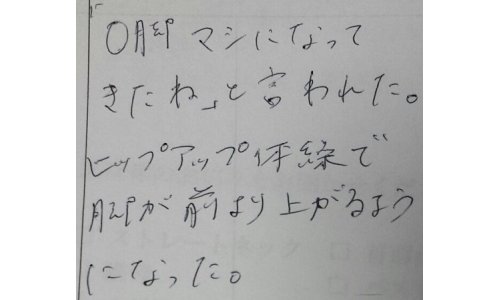 「O脚マシになって
きたね」と言われた。
ヒップアップ体操で
脚が前より上がるよう
になった。